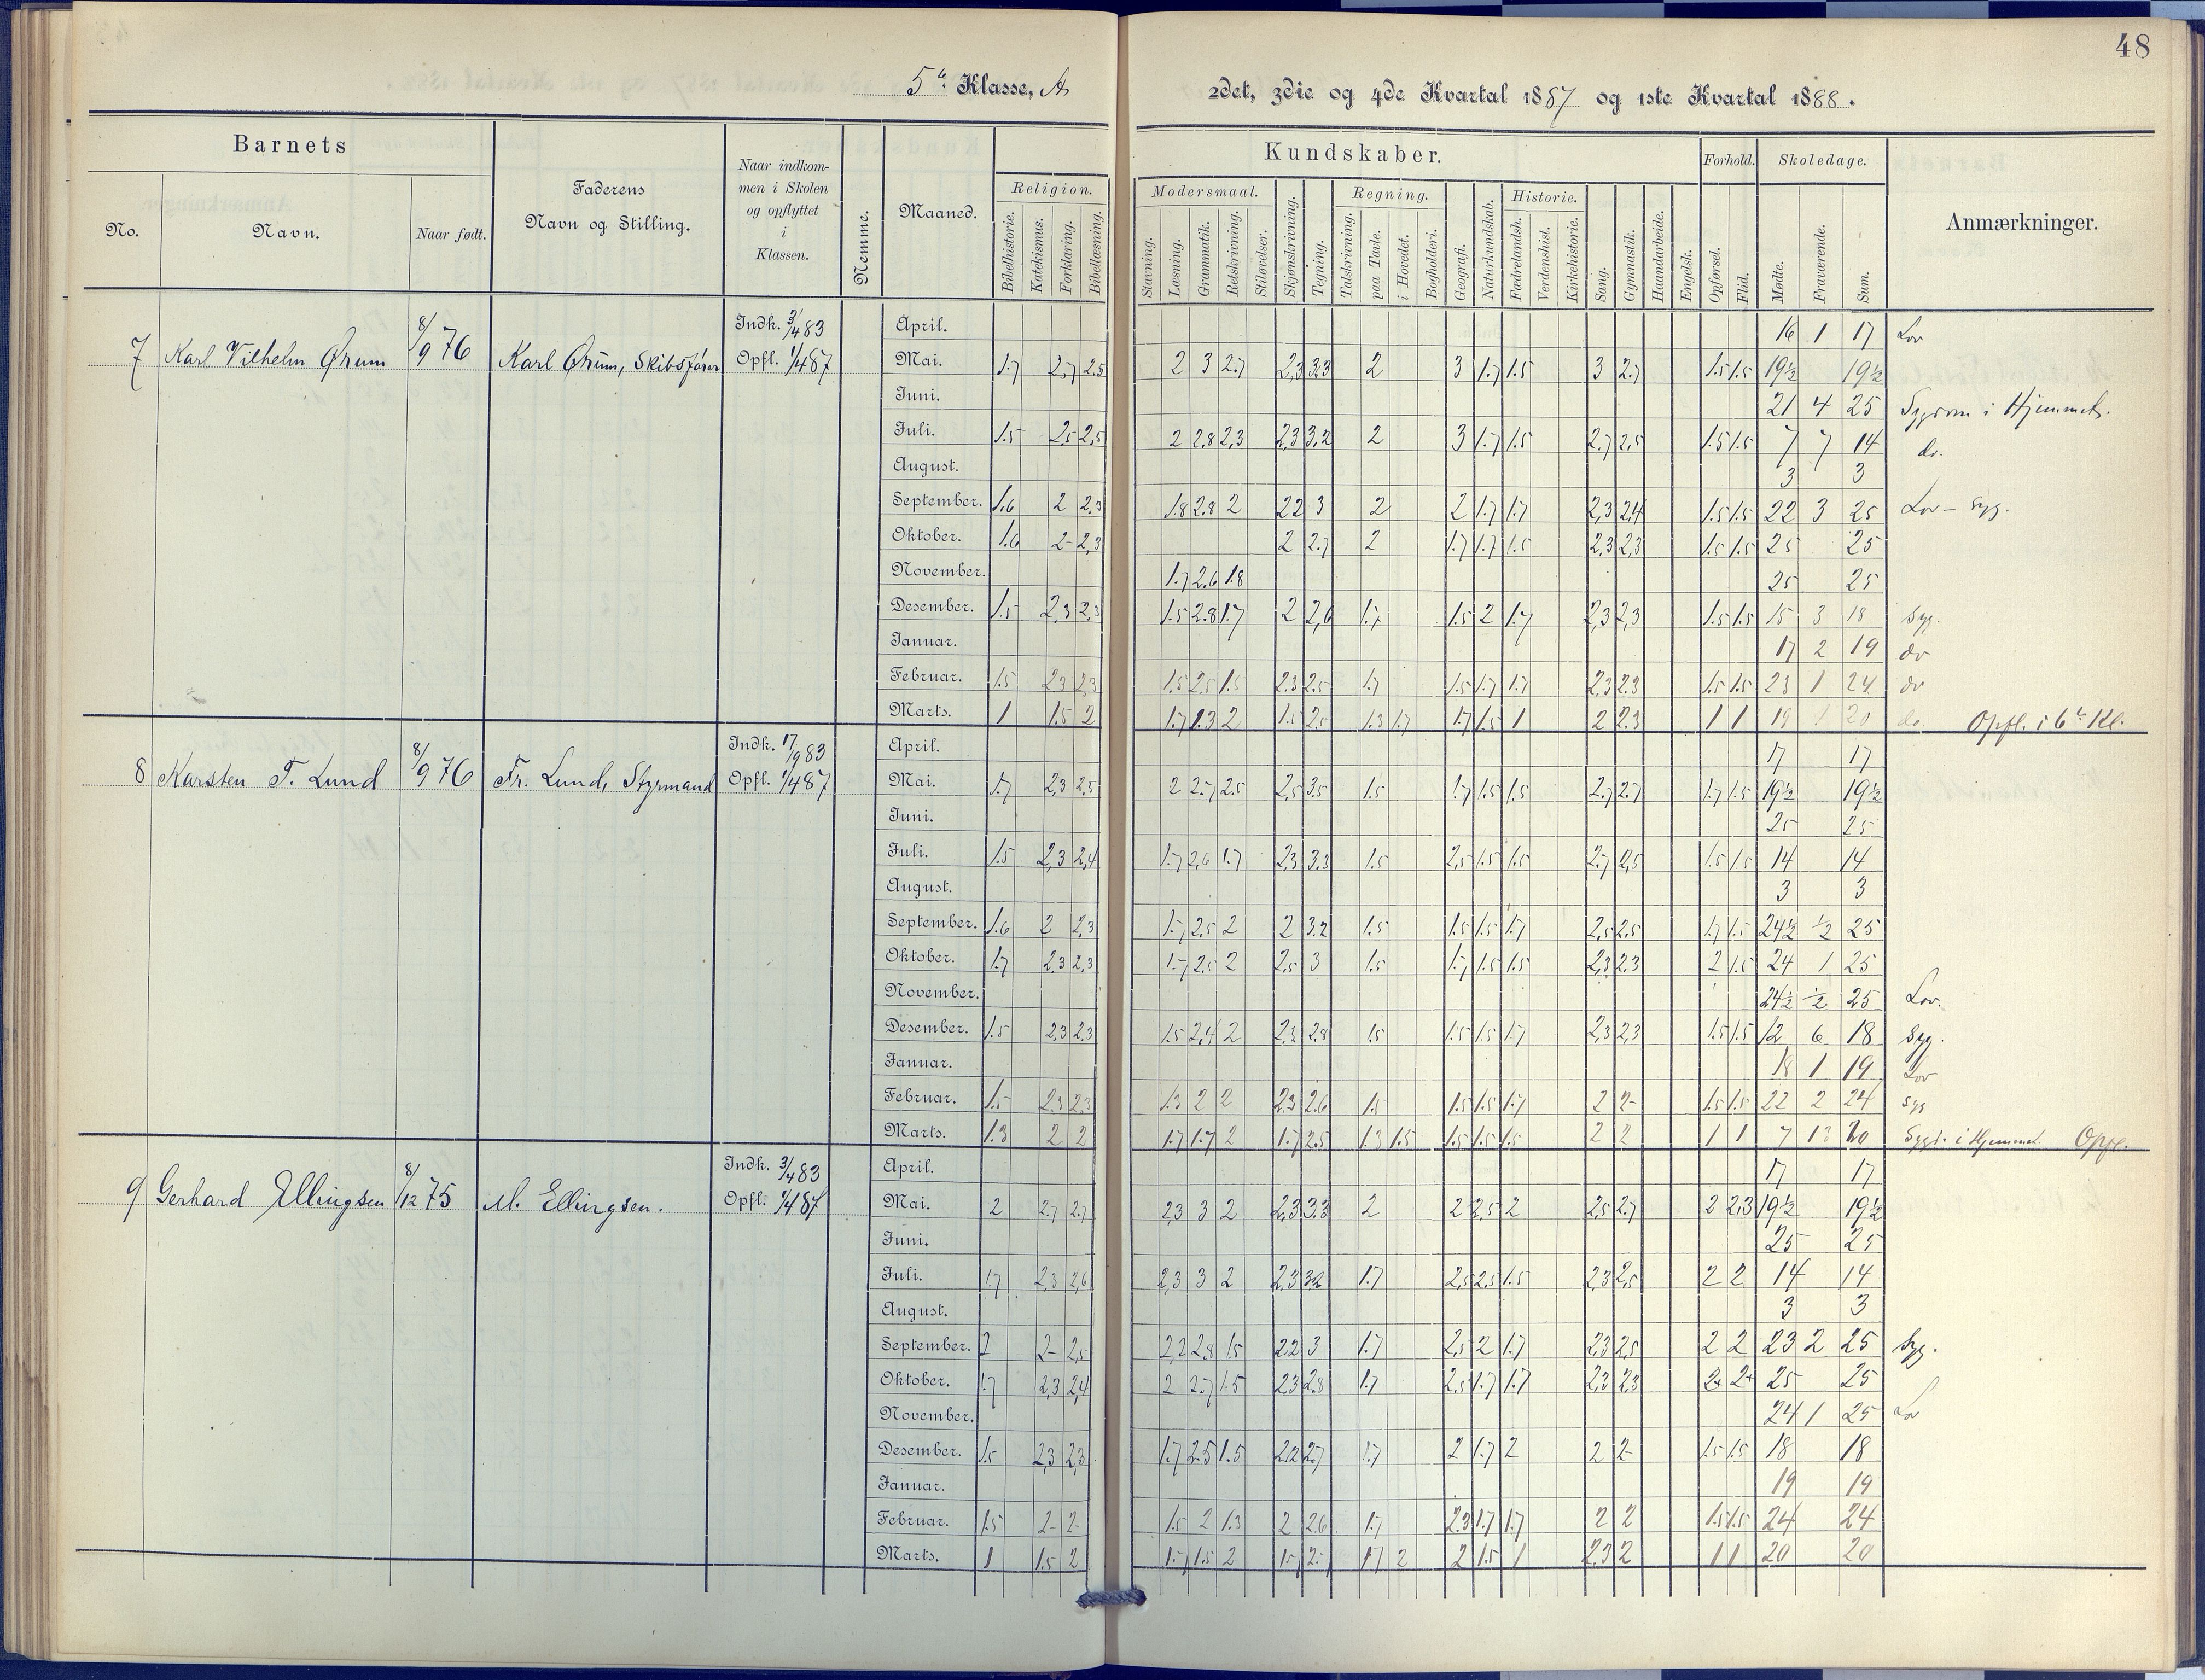 48
5te Klasse, A
2det, 3die og 4de Kvartal 1887 og 1ste Kvartal 1888.
Barnets
No.
Navn.
Naar født.
Faderens
Navn og Stilling.
Naar indkom-
men i Skolen
og opflyttet
i
Klassen.
Nemme.
Maaned.
Kundskaber.
Religion.
Bibelhistorie.
Katekismus.
Forklaring.
Bibellæsning.
Modersmaal.
Stavning.
Læsning.
Grammatik.
Retskrivning.
Stiløvelser.
Skjønskrivning.
Tegning.
Regning.
Talskrivning.
paa Tavle.
i Hovedet.
Bogholderi.
Geografi.
Naturkundskab.
Historie.
Fædrelandsh.
Verdenshist.
Kirkehistorie.
Sang.
Gymnastik.
Haandarbeide.
Engelsk.
Forhold.
Opførsel.
Flid.
Skoledage.
Mødte.
Fraværende.
Sum.
Anmærkninger.
7 Karl Vilhelm Ørum 8/9 76 Karl Ørum, Skibsfører Indk. 3/4 83 Opfl. 1/4 87
April. 16 1 17 Lov
Mai. 1.7 2,7 2.5 2 3 2.7 2,3 3,3 2 3 1.7 1.5 3 2.7 1.5 1.5 19½ 19½
Juni. 21 4 25 Sygdom i Hjemmet.
Juli. 1.5 2,5 2,5 2 2.8 2,3 2,3 3,2 2 3 1.7 1.5 2.7 2,5 1.5 1.5 7 7 14 do.
August. 3 3
September. 1.6 2 2,3 1.8 2.8 2 2.2 3 2 2 1.7 1.7 2,3 2,4 1.5 1.5 22 3 25 Lov – syg.
Oktober. 1.6 2- 2,3 2 2.7 2 1.7 1.7 1.5 2,3 2,3 1.5 1.5 25 25
November. 1.7 2.6 1.8 25 25
Desember. 1.5 2,3 2,3 1.5 2.8 1.7 2 2,6 1.7 1.5 2 1.7 2,3 2,3 1.5 1.5 15 3 18 Syg.
Januar. 17 2 19 do
Februar. 1.5 2.3 2.3 1.5 2.5 1.5 2.3 2.5 1.7 1.5 1.7 1.7 2,3 2.3 1.5 1.5 23 1 24 do
Marts. 1 1.5 2 1.7 1.3 2 1.5 2.5 1.3 1.7 1.7 1.5 1 2 2.3 1 1 19 1 20 do. Opfl. i 6te Kl.
8 Karsten T. Lund 8/9 76 Fr. Lund, Styrmand Indk. 17/9 83 Opfl. 1/4 87
April. 17 17
Mai. 1.7 2,3 2,5 2 2.7 2.5 2,5 3.5 1.5 1.7 1.5 1.5 2.7 2.7 1.7 1.5 19½ 19½
Juni. 25 25
Juli. 1.5 2,3 2,4 1.7 2.6 1.7 2,3 3.3 1.5 2,5 1.5 1.5 2.7 2,5 1.5 1.5 14 14
August. 3 3
September. 1.6 2 2,3 1.7 2.5 2 2 3.2 1.5 1.5 1.5 1.7 2,5 2.5 1.7 1.5 24½ ½ 25
Oktober. 1.7 2.3 2,3 1.7 2.5 2 2,5 3 1.5 1.7 1.5 1.5 2,3 2.3 2 1.5 24 1 25
November. 24½ ½ 25 Lov.
Desember. 1.5 2,3 2.3 1.5 2,4 2 2.3 2.8 1.5 1.5 1.5 1.7 2,3 2,3 1.5 1.5 12 6 18 Syg.
Januar. 18 1 19 Lov
Februar. 1.5 2.3 2.3 1.3 2 2 2.3 2.6 1.5 1.5 1.5 1.7 2 2- 1.5 1.5 22 2 24 syg
Marts. 1.3 2 2 1.7 1.7 2 1.7 2.5 1.3 1.5 1.5 1.5 1.5 2 2 1 1 7 13 20 Sygd. i Hjemmet. Opfl.
9 Gerhard Ellingsen 8/12 75 M. Ellingsen. Indk. 3/4 83 Opfl. 1/4 87
April. 17 17
Mai. 2 2.7 2.7 2,3 3 2 2,3 3.3 2 2 2,5 2 2,5 2.7 2 2,3 19½ 19½
Juni. 25 25
Juli. 1.7 2.3 2,6 2,3 3 2 2.3 3.2 1.7 2,5 2,5 1.5 2,3 2,5 2 2 14 14
August. 3 3
September. 2 2- 2,5 2,2 2.8 1.5 2.2 3 1.7 2,5 2 1.7 2,3 2,5 2 2 23 2 25 Syg.
Oktober. 1.7 2,3 2,4 2 2.7 1.5 2.3 2.8 1.7 2.5 1.7 1.7 2,3 2,3 2+ 2+ 25 25
November. 24 1 25 Lov
Desember. 1.5 2,3 2,3 1.7 2.5 1.5 2.2 2.7 1.7 2 1.7 2 2 2- 1.5 1.5 18 18
Januar. 19 19
Februar. 1.5 2- 2- 1.5 2 1.3 2 2.6 1.7 2.3 1.7 1.7 2 2 1.5 1.5 24 24
Marts. 1 1.5 2 1.7 1.5 2 1.7 2.7 1.7 2 2 1.5 1 2.3 2 1 1 20 20